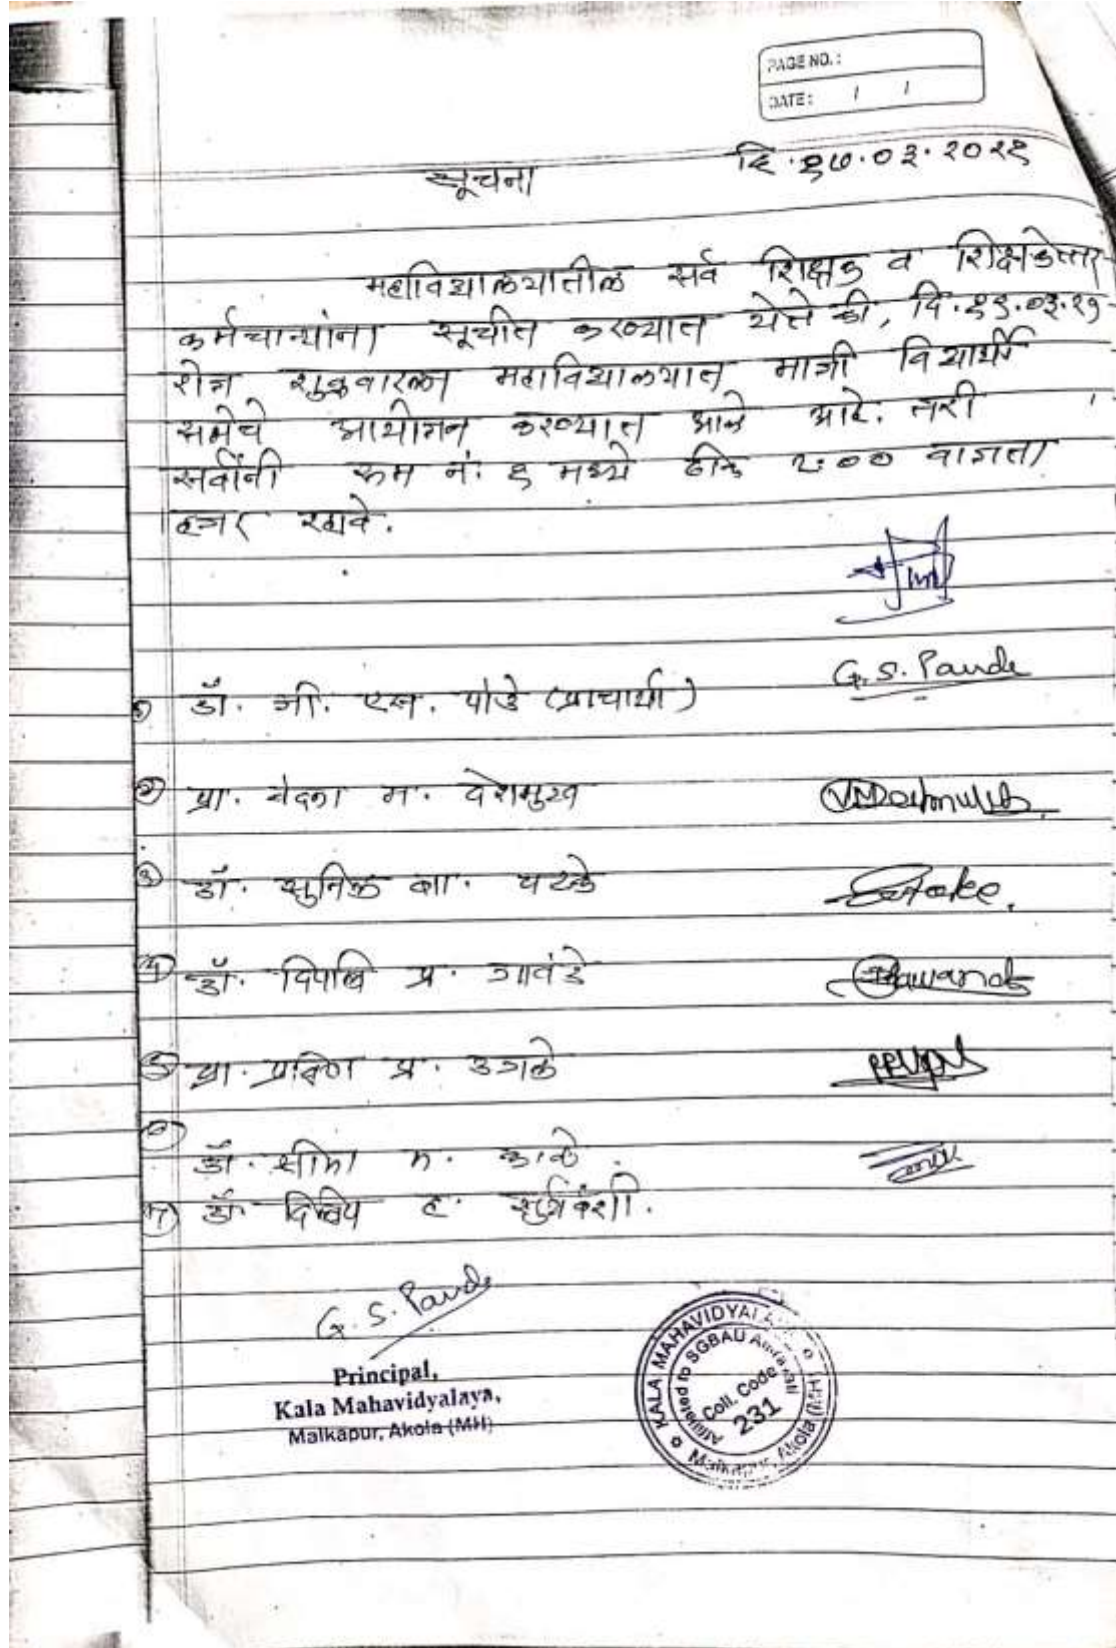 PAGE NO. :
DATE : / /
दि. १७.०३.२०२१
सूचना
महाविद्यालयातील सर्व शिक्षक व शिक्षकेत्तर
कर्मचाऱ्यांना सूचीत करण्यात येते की, दि. १९.०३.२१
रोज शुक्रवारला महाविद्यालयात माजी विद्यार्थी
सभेचे आयोजन करण्यात आले आहे. तरी
सर्वांनी रूम नं. १ मध्ये ठीक २:०० वाजता
हजर रहावे.
G. S. Pande
१) डॉ. जी. एस. पांडे (प्राचार्या)
२) प्रा. वंदना म. देशमुख
३) डॉ. सुनिल बा.
४) डॉ. दिपाली प्र. गावंडे
५) प्रा. प्रविण प्र. उगले
६) डॉ. सीमा म. काळे
७) डॉ. दिलीप ह. सुर्यवंशी.
G. S. Pande
Principal,
Kala Mahavidyalaya,
Malkapur, Akola (MH)
KALA MAHAVIDYALAYA
Affiliated to SGBAU Amravati
Coll. Code
231
Malkapur, Akola (MH)